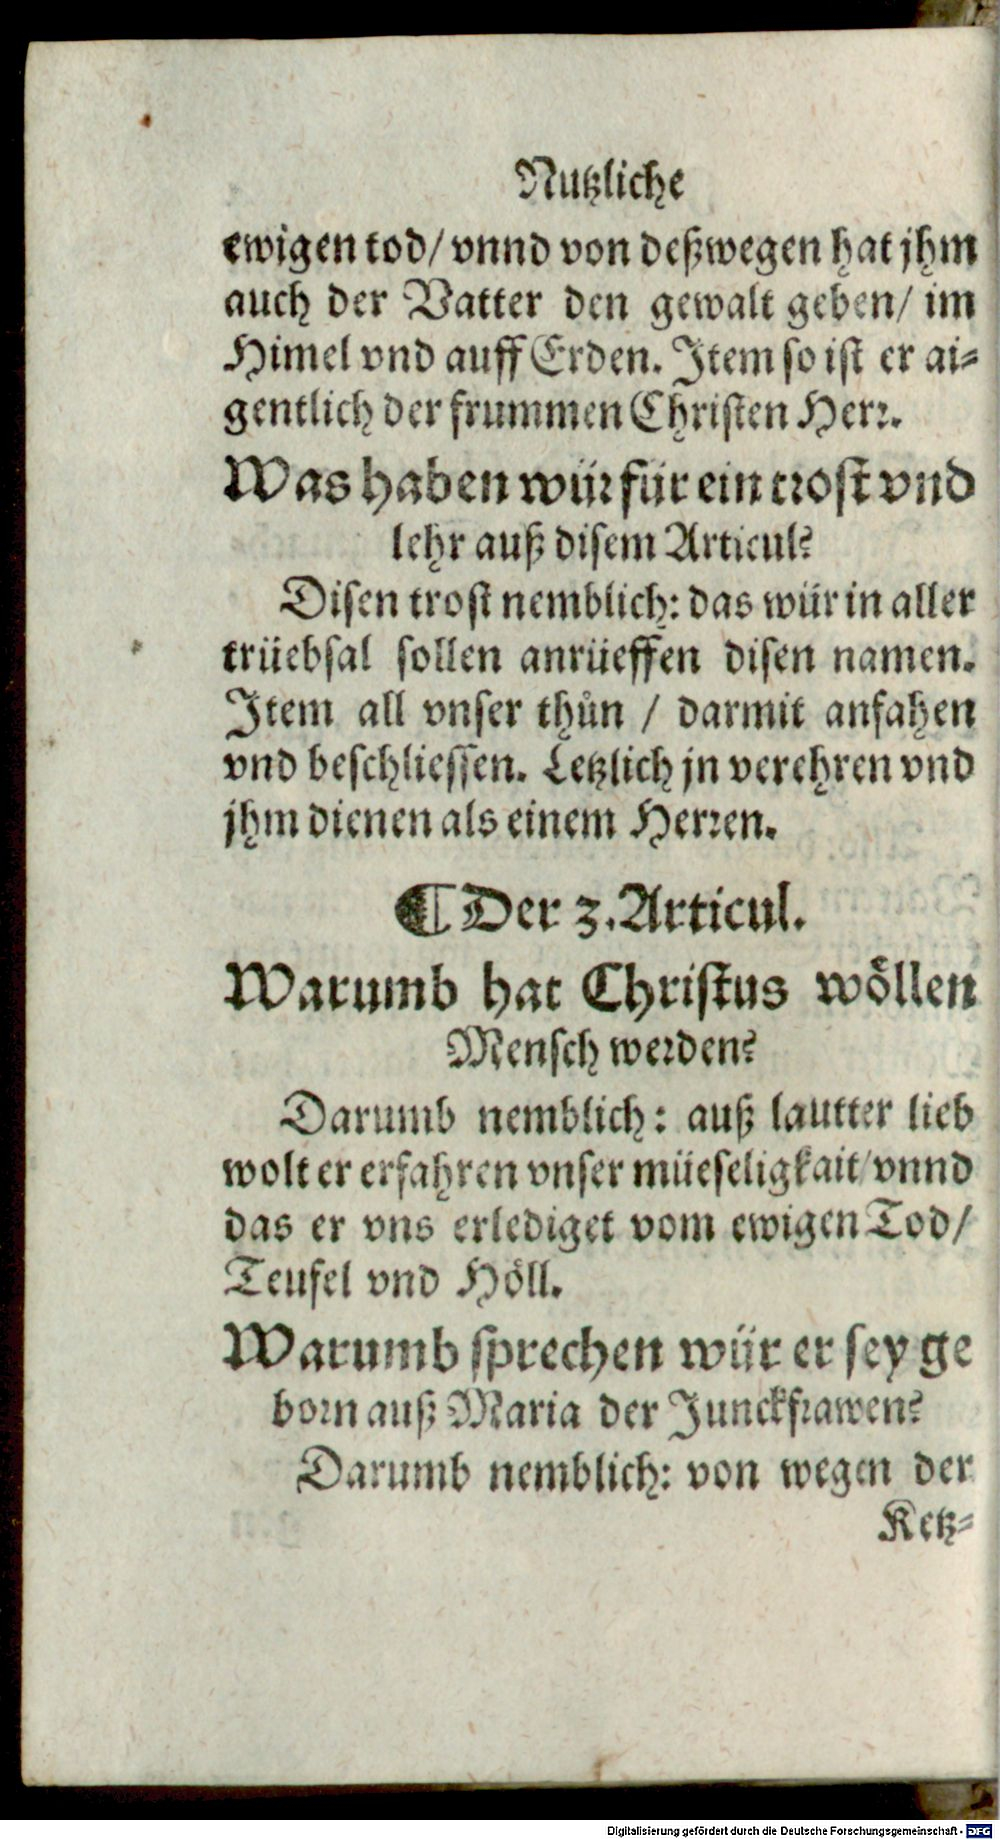 Nutzliche
ewigen tod/ vnnd von deßwegen hat jhm
auch der Vatter den gewalt geben/ im
Himel vnd auff Erden. Item so ist er ai-
gentlich der frummen Christen Herr.
Was haben wür für ein trost vnd
lehr auß disem Articul?
Disen trost nemblich: das wür in aller
trüebsal sollen anrüeffen disen namen.
Item all vnser thůn / darmit anfahen
vnd beschliessen. Letzlich jn verehren vnd
jhm dienen als einem Herren.
¶ Der 3. Articul.
Warumb hat Christus wöllen
Mensch werden?
Darumb nemblich: auß lautter lieb
wolt er erfahren vnser müeseligkait/ vnnd
das er vns erlediget vom ewigen Tod/
Teufel vnd Höll.
Warumb sprechen wür er sey ge
born auß Maria der Junckfrawen?
Darumb nemblich: von wegen der
Ketz-
Digitalisierung gefördert durch die Deutsche Forschungsgemeinschaft - DFG